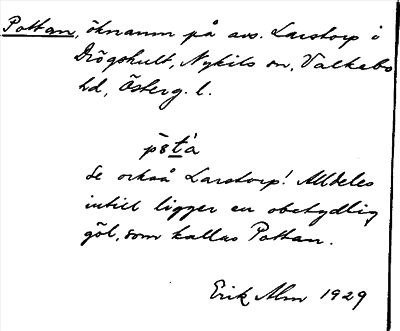 Pottan, öknamn på avs. Larstorp i
Drögshult, Nykils sn, Valkebo
hd, Österg. l.
Se också Larstorp! Alldeles
intill ligger en obetydlig
göl, som kallas Pottan.
Erik Alm 1929